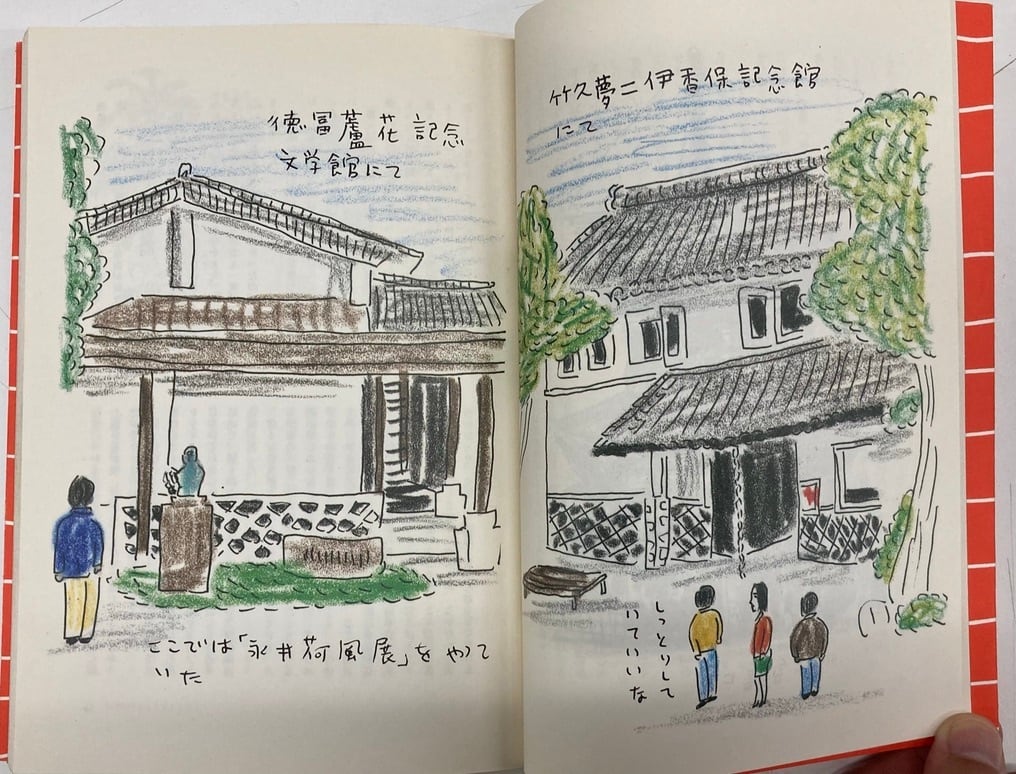 徳冨蘆花記念
文学館にて
ここでは「永井荷風展」をやって
いた
竹久夢二伊香保記念館
にて
しっとりして
いていいな